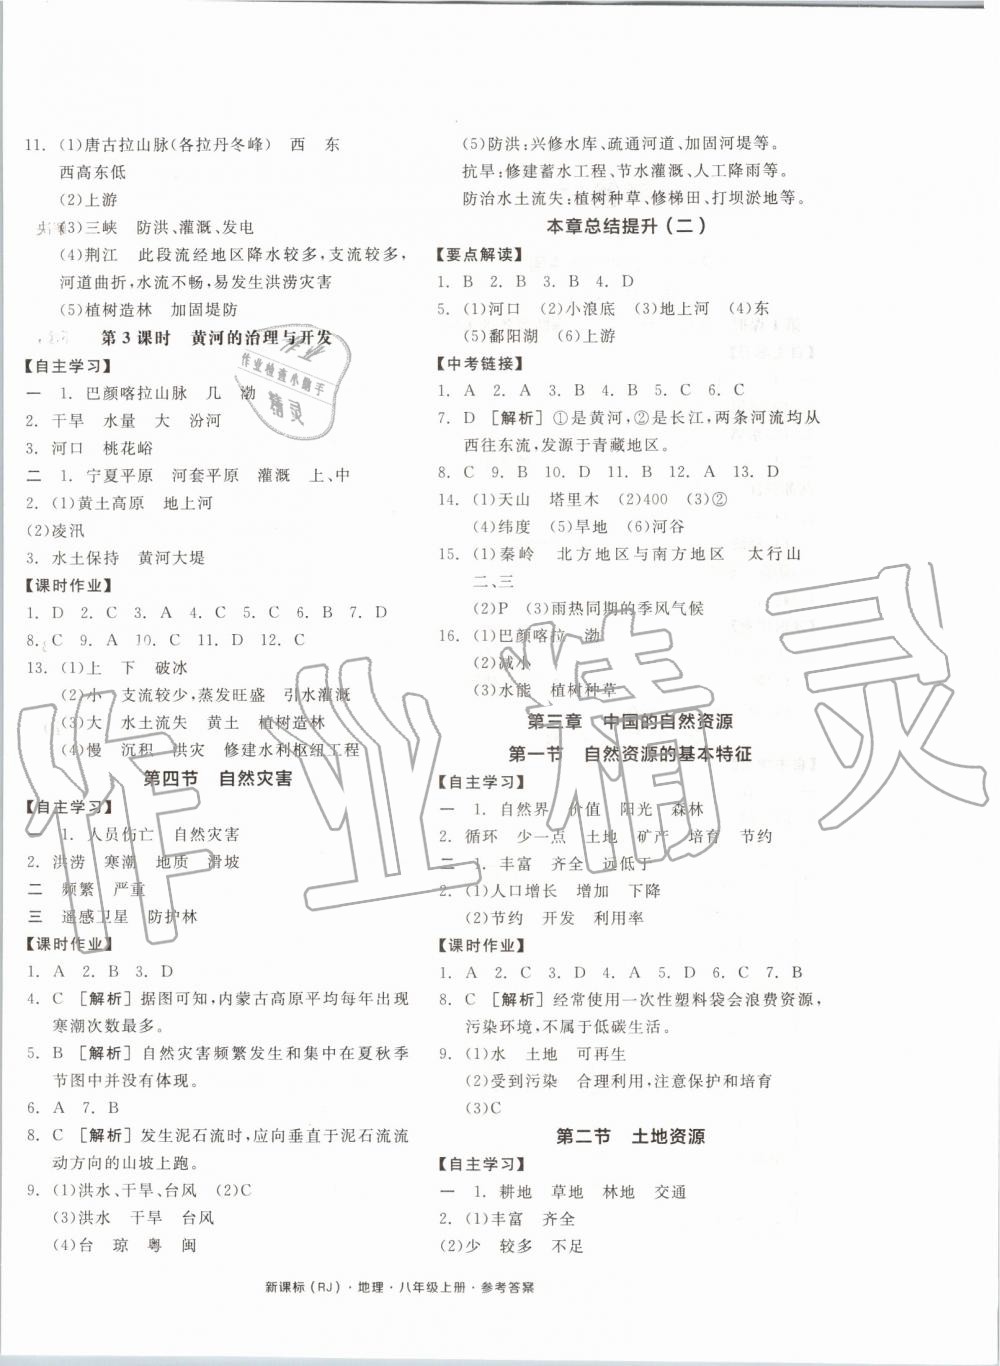 11. (1)唐古拉山脉(各拉丹冬峰) 西 东
西高东低
(2)上游
(3)三峡 防洪、灌溉、发电
(4)荆江 此段流经地区降水较多,支流较多,
河道曲折,水流不畅,易发生洪涝灾害
(5)植树造林 加固堤防
第3课时 黄河的治理与开发
【自主学习】
一 1. 巴颜喀拉山脉 几 渤
2. 干旱 水量 大 汾河
3. 河口 桃花峪
二 1. 宁夏平原 河套平原 灌溉 上、中
2. (1)黄土高原 地上河
(2)凌汛
3. 水土保持 黄河大堤
【课时作业】
1. D 2. C 3. A 4. C 5. C 6. B 7. D
8. C 9. A 10. C 11. D 12. C
13. (1)上 下 破冰
(2)小 支流较少,蒸发旺盛 引水灌溉
(3)大 水土流失 黄土 植树造林
(4)慢 沉积 洪灾 修建水利枢纽工程
第四节 自然灾害
【自主学习】
1. 人员伤亡 自然灾害
2. 洪涝 寒潮 地质 滑坡
二 频繁 严重
三 遥感卫星 防护林
【课时作业】
1. A 2. B 3. D
4. C [解析]据图可知,内蒙古高原平均每年出现
寒潮次数最多。
5. B [解析]自然灾害频繁发生和集中在夏秋季
节图中并没有体现。
6. A 7. B
8. C [解析]发生泥石流时,应向垂直于泥石流流
动方向的山坡上跑。
9. (1)洪水、干旱、台风 (2)C
(3)洪水 干旱 台风
(4)台 琼 粤 闽
(5)防洪:兴修水库、疏通河道、加固河堤等。
抗旱:修建蓄水工程、节水灌溉、人工降雨等。
防治水土流失:植树种草、修梯田、打坝淤地等。
本章总结提升(二)
【要点解读】
1. B 2. B 3. B 4. D
5. (1)河口 (2)小浪底 (3)地上河 (4)东
(5)鄱阳湖 (6)上游
【中考链接】
1. A 2. A 3. B 4. B 5. C 6. C
7. D [解析]①是黄河,②是长江,两条河流均从
西往东流,发源于青藏地区。
8. C 9. B 10. D 11. B 12. A 13. D
14. (1)天山 塔里木 (2)400 (3)②
(4)纬度 (5)旱地 (6)河谷
15. (1)秦岭 北方地区与南方地区 太行山
二、三
(2)P (3)雨热同期的季风气候
16. (1)巴颜喀拉 渤
(2)减小
(3)水能 植树种草
第三章 中国的自然资源
第一节 自然资源的基本特征
【自主学习】
一 1. 自然界 价值 阳光 森林
2. 循环 少一点 土地 矿产 培育 节约
二 1. 丰富 齐全 远低于
2. (1)人口增长 增加 下降
(2)节约 开发 利用率
【课时作业】
1. A 2. C 3. C 4. D 5. D 6. C 7. B
8. C [解析]经常使用一次性塑料袋会浪费资源,
污染环境,不属于低碳生活。
9. (1)水 土地 可再生
(2)受到污染 合理利用,注意保护和培育
(3)C
第二节 土地资源
【自主学习】
一 1. 耕地 草地 林地 交通
2. (1)丰富 齐全
(2)少 较多 不足
新课标(RJ)·地理·八年级上册·参考答案
作业检查小帮手
精灵
作业精灵